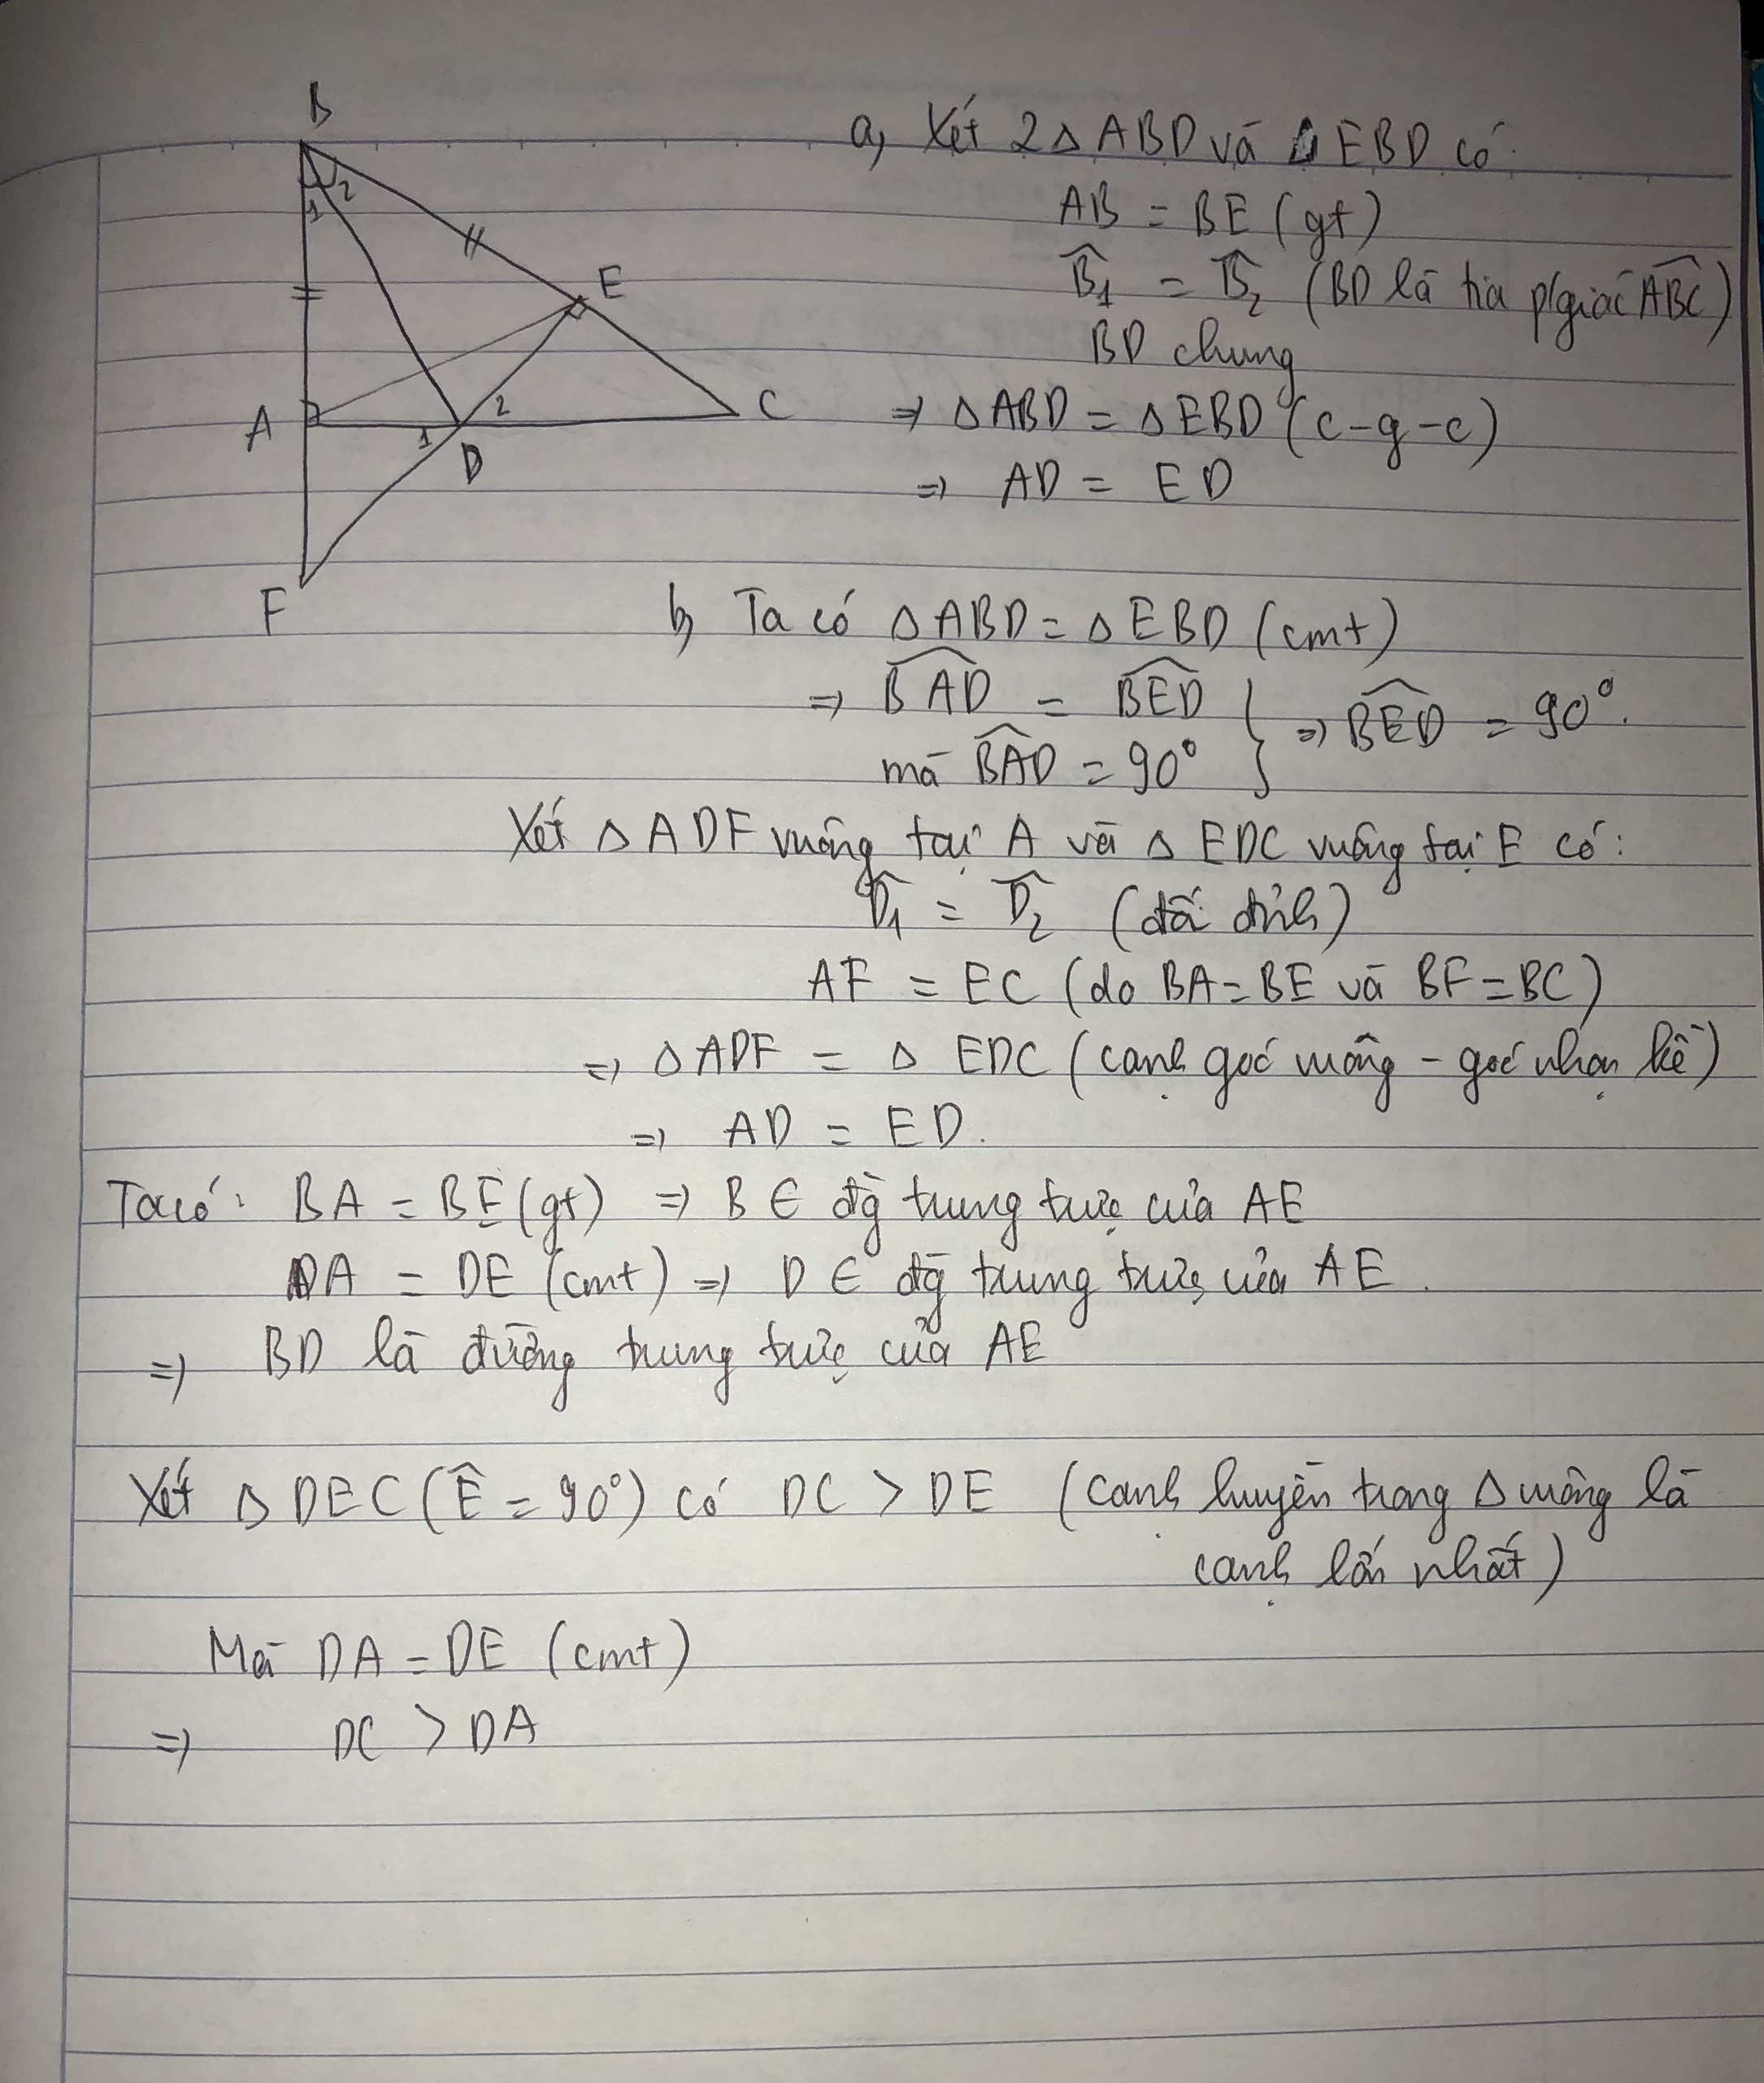 B
1 2
E
A
2
C
1
D
F
a, Xét 2 Δ ABD và Δ EBD có:
AB = BE (gt)
B̂₁ = B̂₂ (BD là tia p/giác \widehat{ABC})
BD chung
⇒ Δ ABD = Δ EBD (c-g-c)
⇒ AD = ED
b, Ta có Δ ABD = Δ EBD (cmt)
⇒ \widehat{BAD} = \widehat{BED} } ⇒ \widehat{BED} = 90°.
mà \widehat{BAD} = 90°
Xét Δ ADF vuông tại A và Δ EDC vuông tại E có:
D̂₁ = D̂₂ (đối đỉnh)
AF = EC (do BA = BE và BF = BC)
⇒ Δ ADF = Δ EDC (cạnh góc vuông - góc nhọn kề)
⇒ AD = ED.
Ta có: BA = BE (gt) ⇒ B ∈ đg trung trực của AE
DA = DE (cmt) ⇒ D ∈ đg trung trực của AE.
⇒ BD là đường trung trực của AE
Xét Δ DEC (Ê = 90°) có DC > DE (cạnh huyền trong Δ vuông là
cạnh lớn nhất)
Mà DA = DE (cmt)
⇒ DC > DA